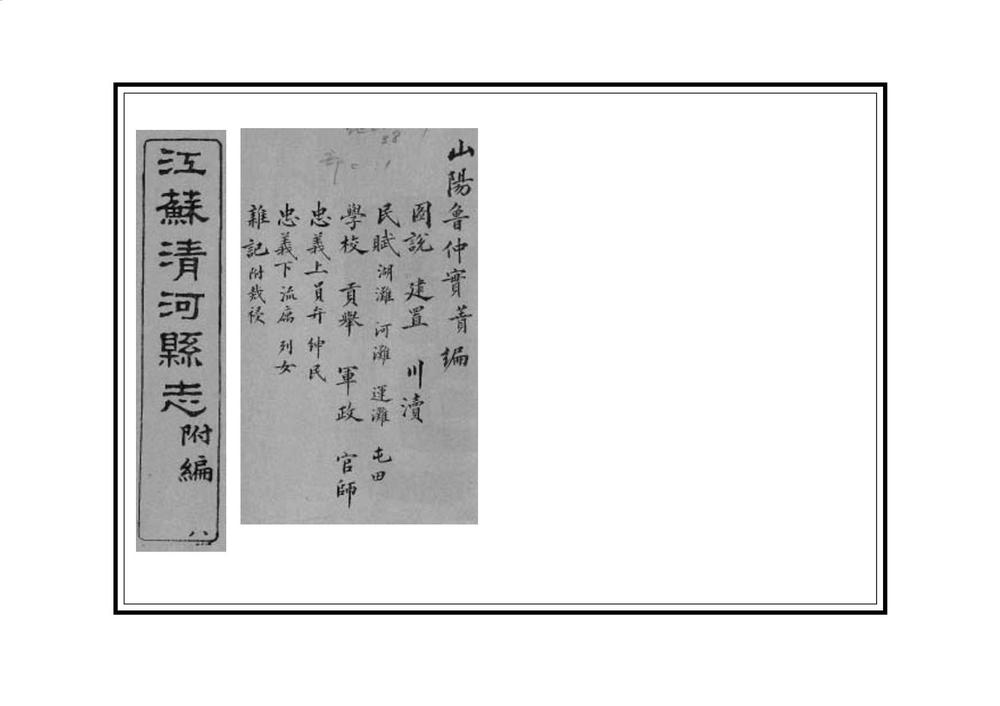 江蘇清河縣志附編
八
山陽魯仲實蕢編
圖說 建置 川瀆
民賦 湖灘 河灘 運灘 屯田
學校 貢舉 軍政 官師
忠義上 員弁 紳民
忠義下 流寓 列女
雜記 附烖祲